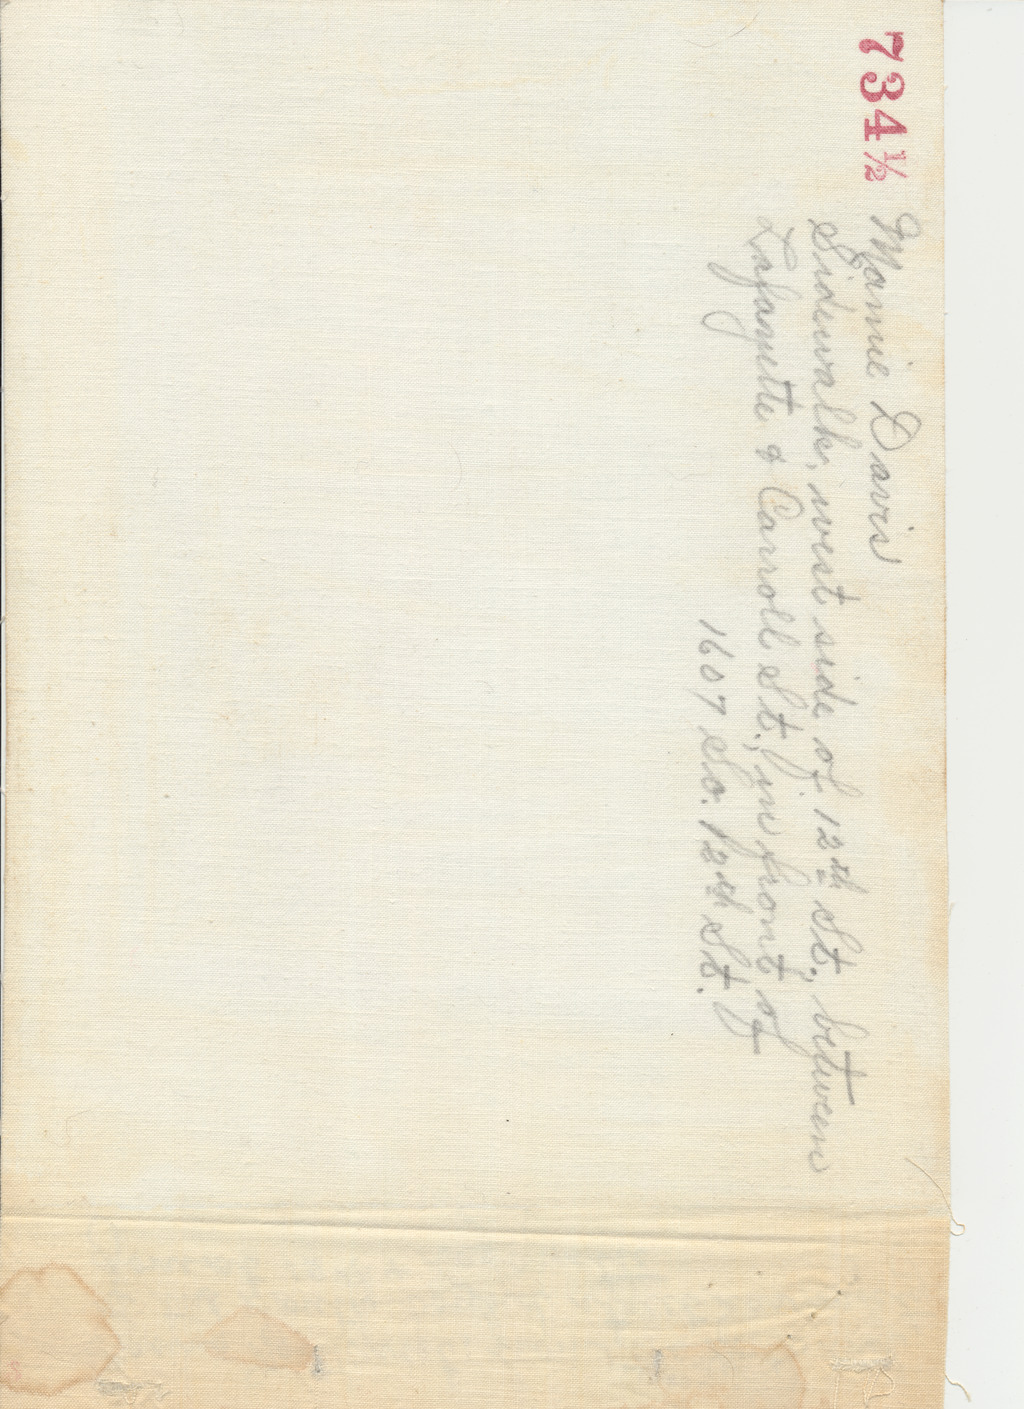 734½
Mamie Davis
Sidewalk, west side of 12th St., between
Lafayette & Carroll St., in front of
1607 So. 12th St.